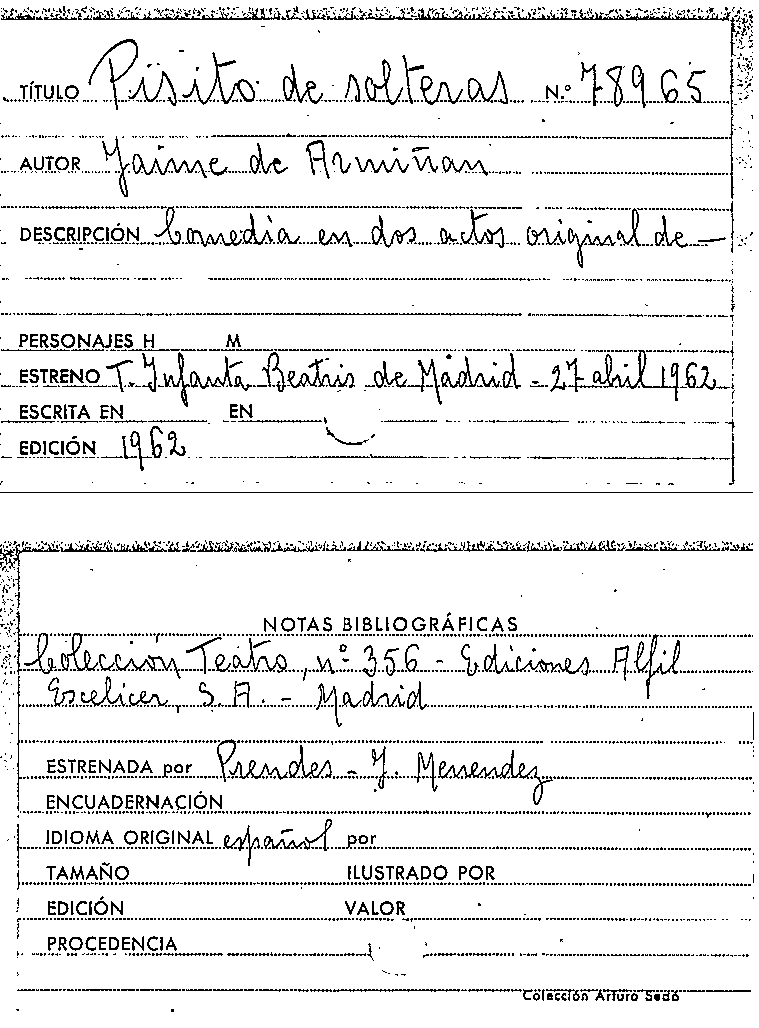 TÍTULO Pisito de solteras N.º 78965
AUTOR Jaime de Armiñan
DESCRIPCIÓN Comedia en dos actos original de —
PERSONAJES H M
ESTRENO T. Infanta Beatris de Madrid - 27 abril 1962
ESCRITA EN EN
EDICIÓN 1962
NOTAS BIBLIOGRÁFICAS
Colección Teatro, nº 356 - Ediciones Alfil
Escelicer, S. A. - Madrid
ESTRENADA por Prendes - J. Menendez
ENCUADERNACIÓN
IDIOMA ORIGINAL español por
TAMAÑO ILUSTRADO POR
EDICIÓN VALOR
PROCEDENCIA
Colección Arturo Sedó